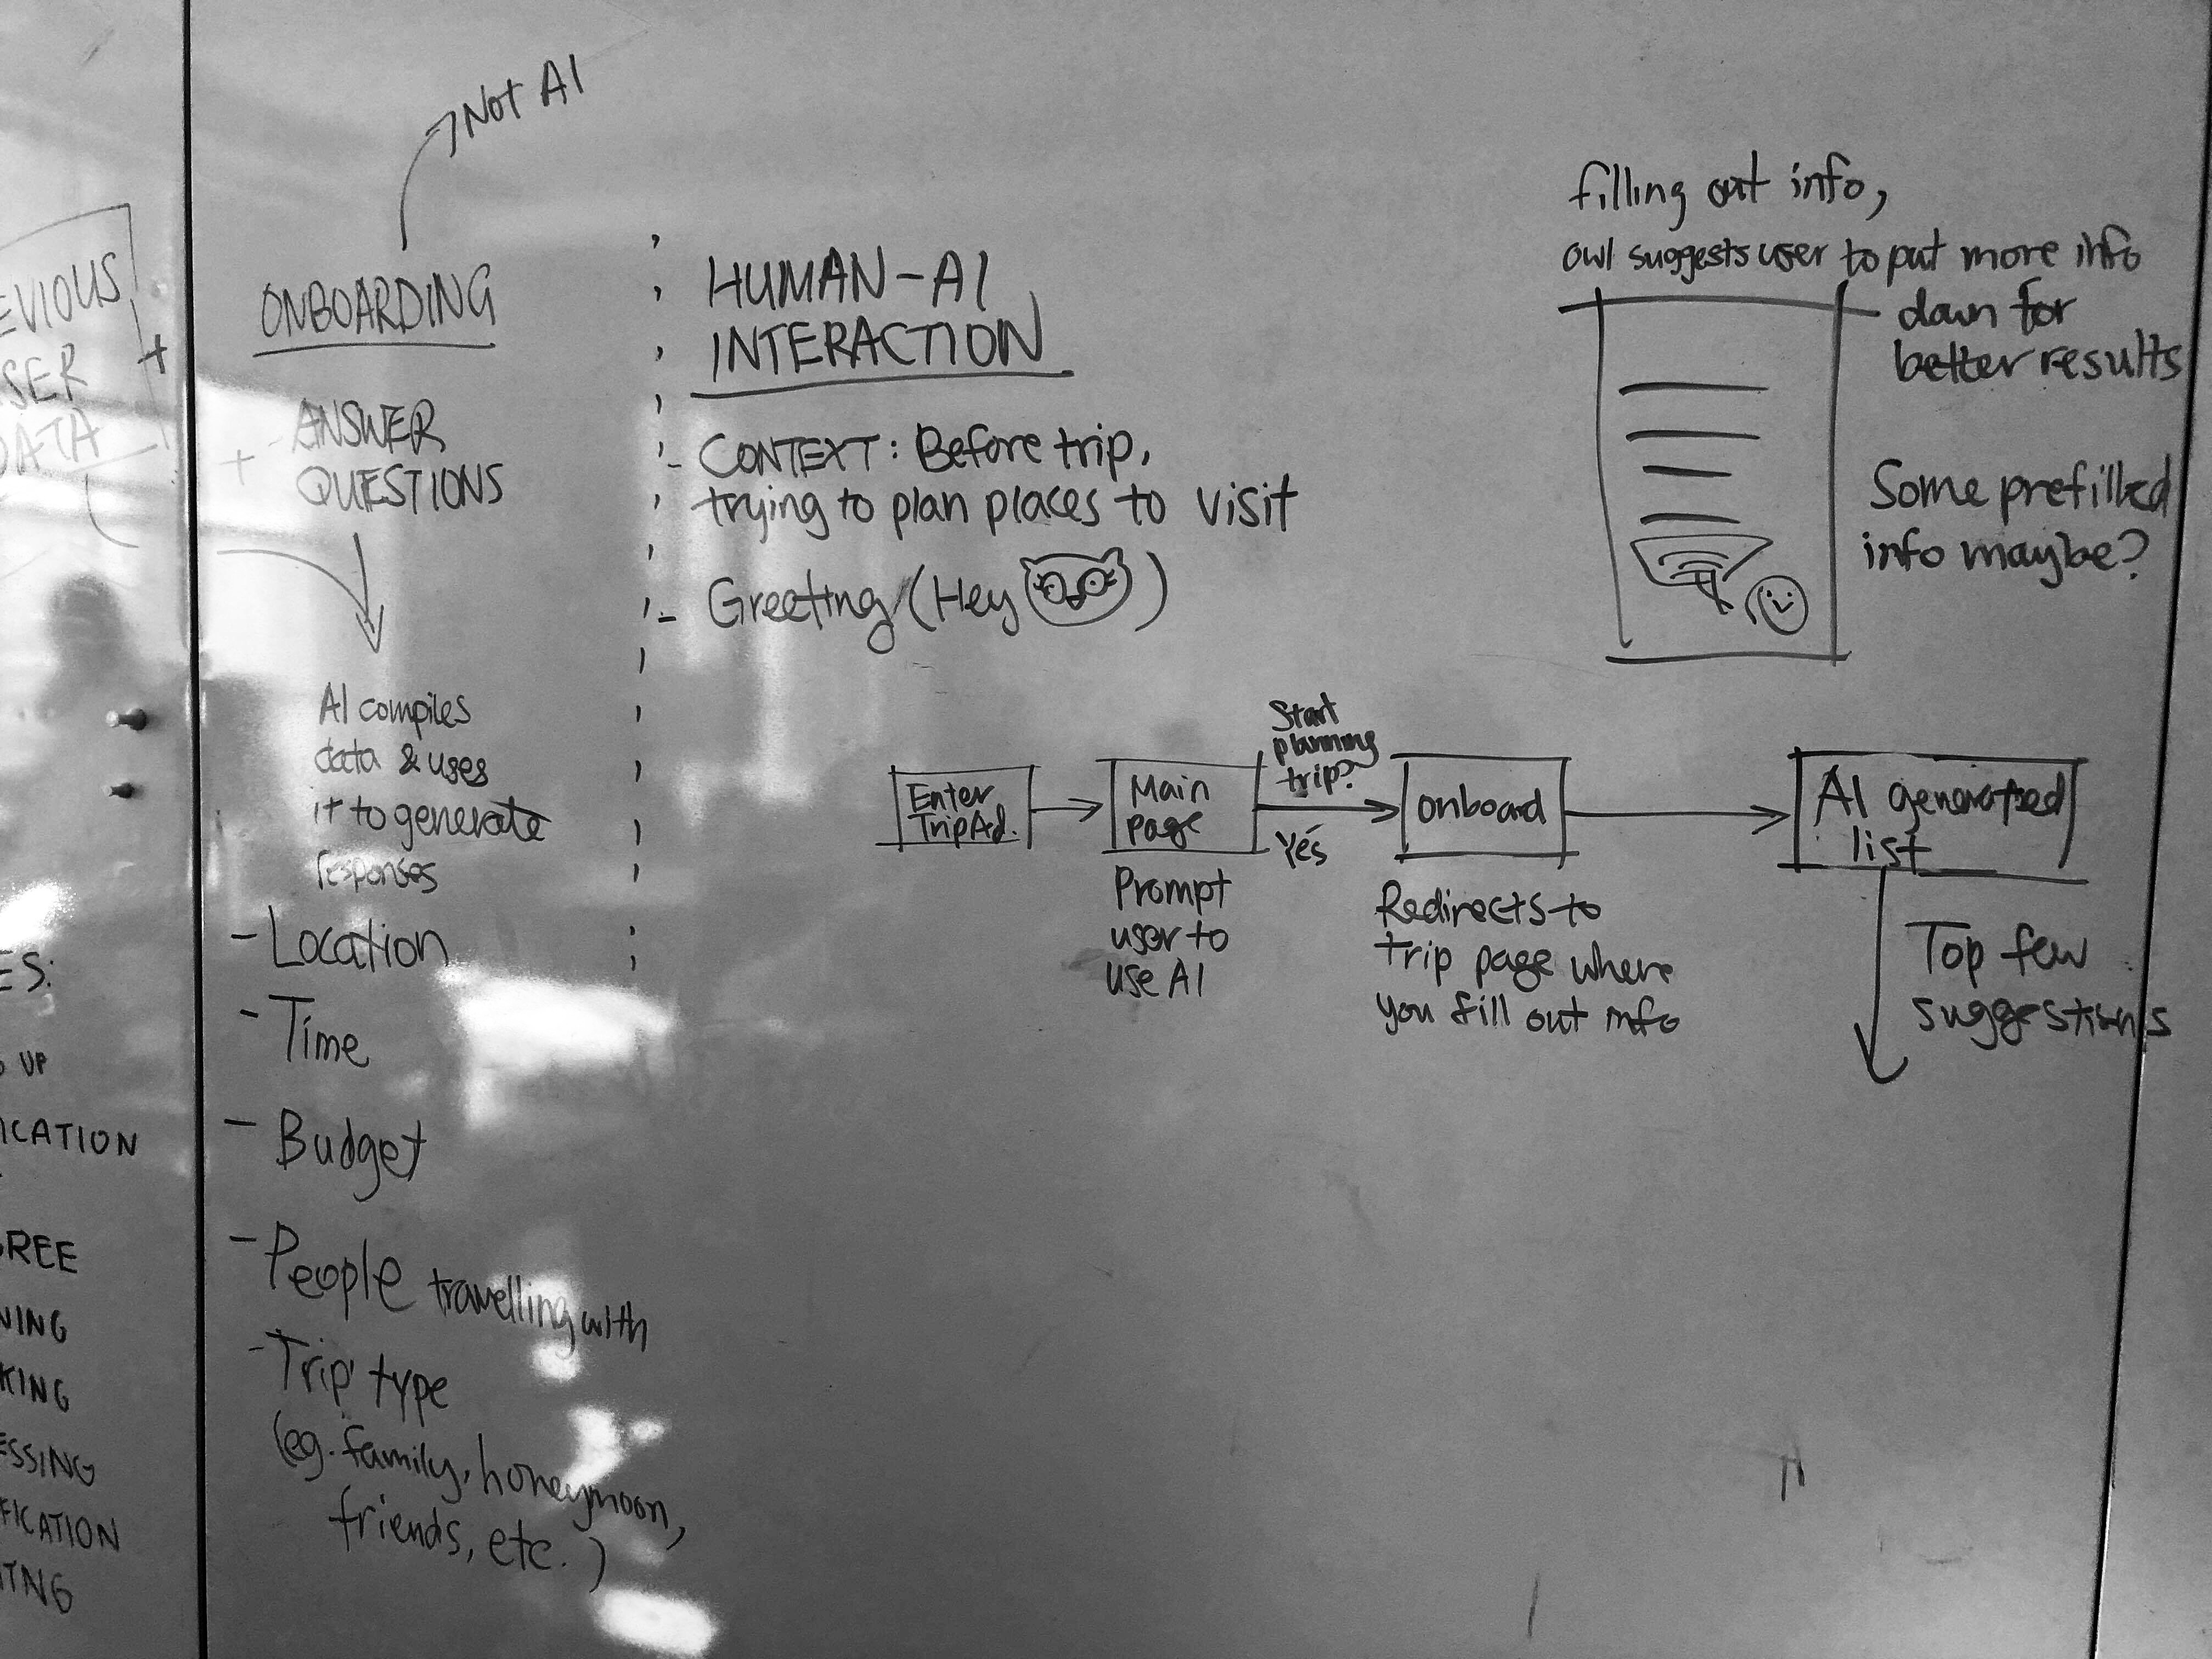 Not AI
ONBOARDING
ANSWER
QUESTIONS
+
+
AI compiles
data & uses
it to generate
responses
- Location
- Time
- Budget
- People travelling with
- Trip type
(eg. family, honeymoon,
friends, etc.)
HUMAN-AI
INTERACTION
- CONTEXT: Before trip,
trying to plan places to visit
- Greeting (Hey )
Enter
TripAd.
Main
page
Prompt
user to
use AI
Start
planning
trip?
Yes
onboard
Redirects to
trip page where
you fill out info
AI generated
list
Top few
suggestions
filling out info,
owl suggests user to put more info
down for
better results
Some prefilled
info maybe?
EVIOUS
SER
DATA
ES:
UP
ICATION
REE
NING
KING
ESSING
FICATION
ITNG